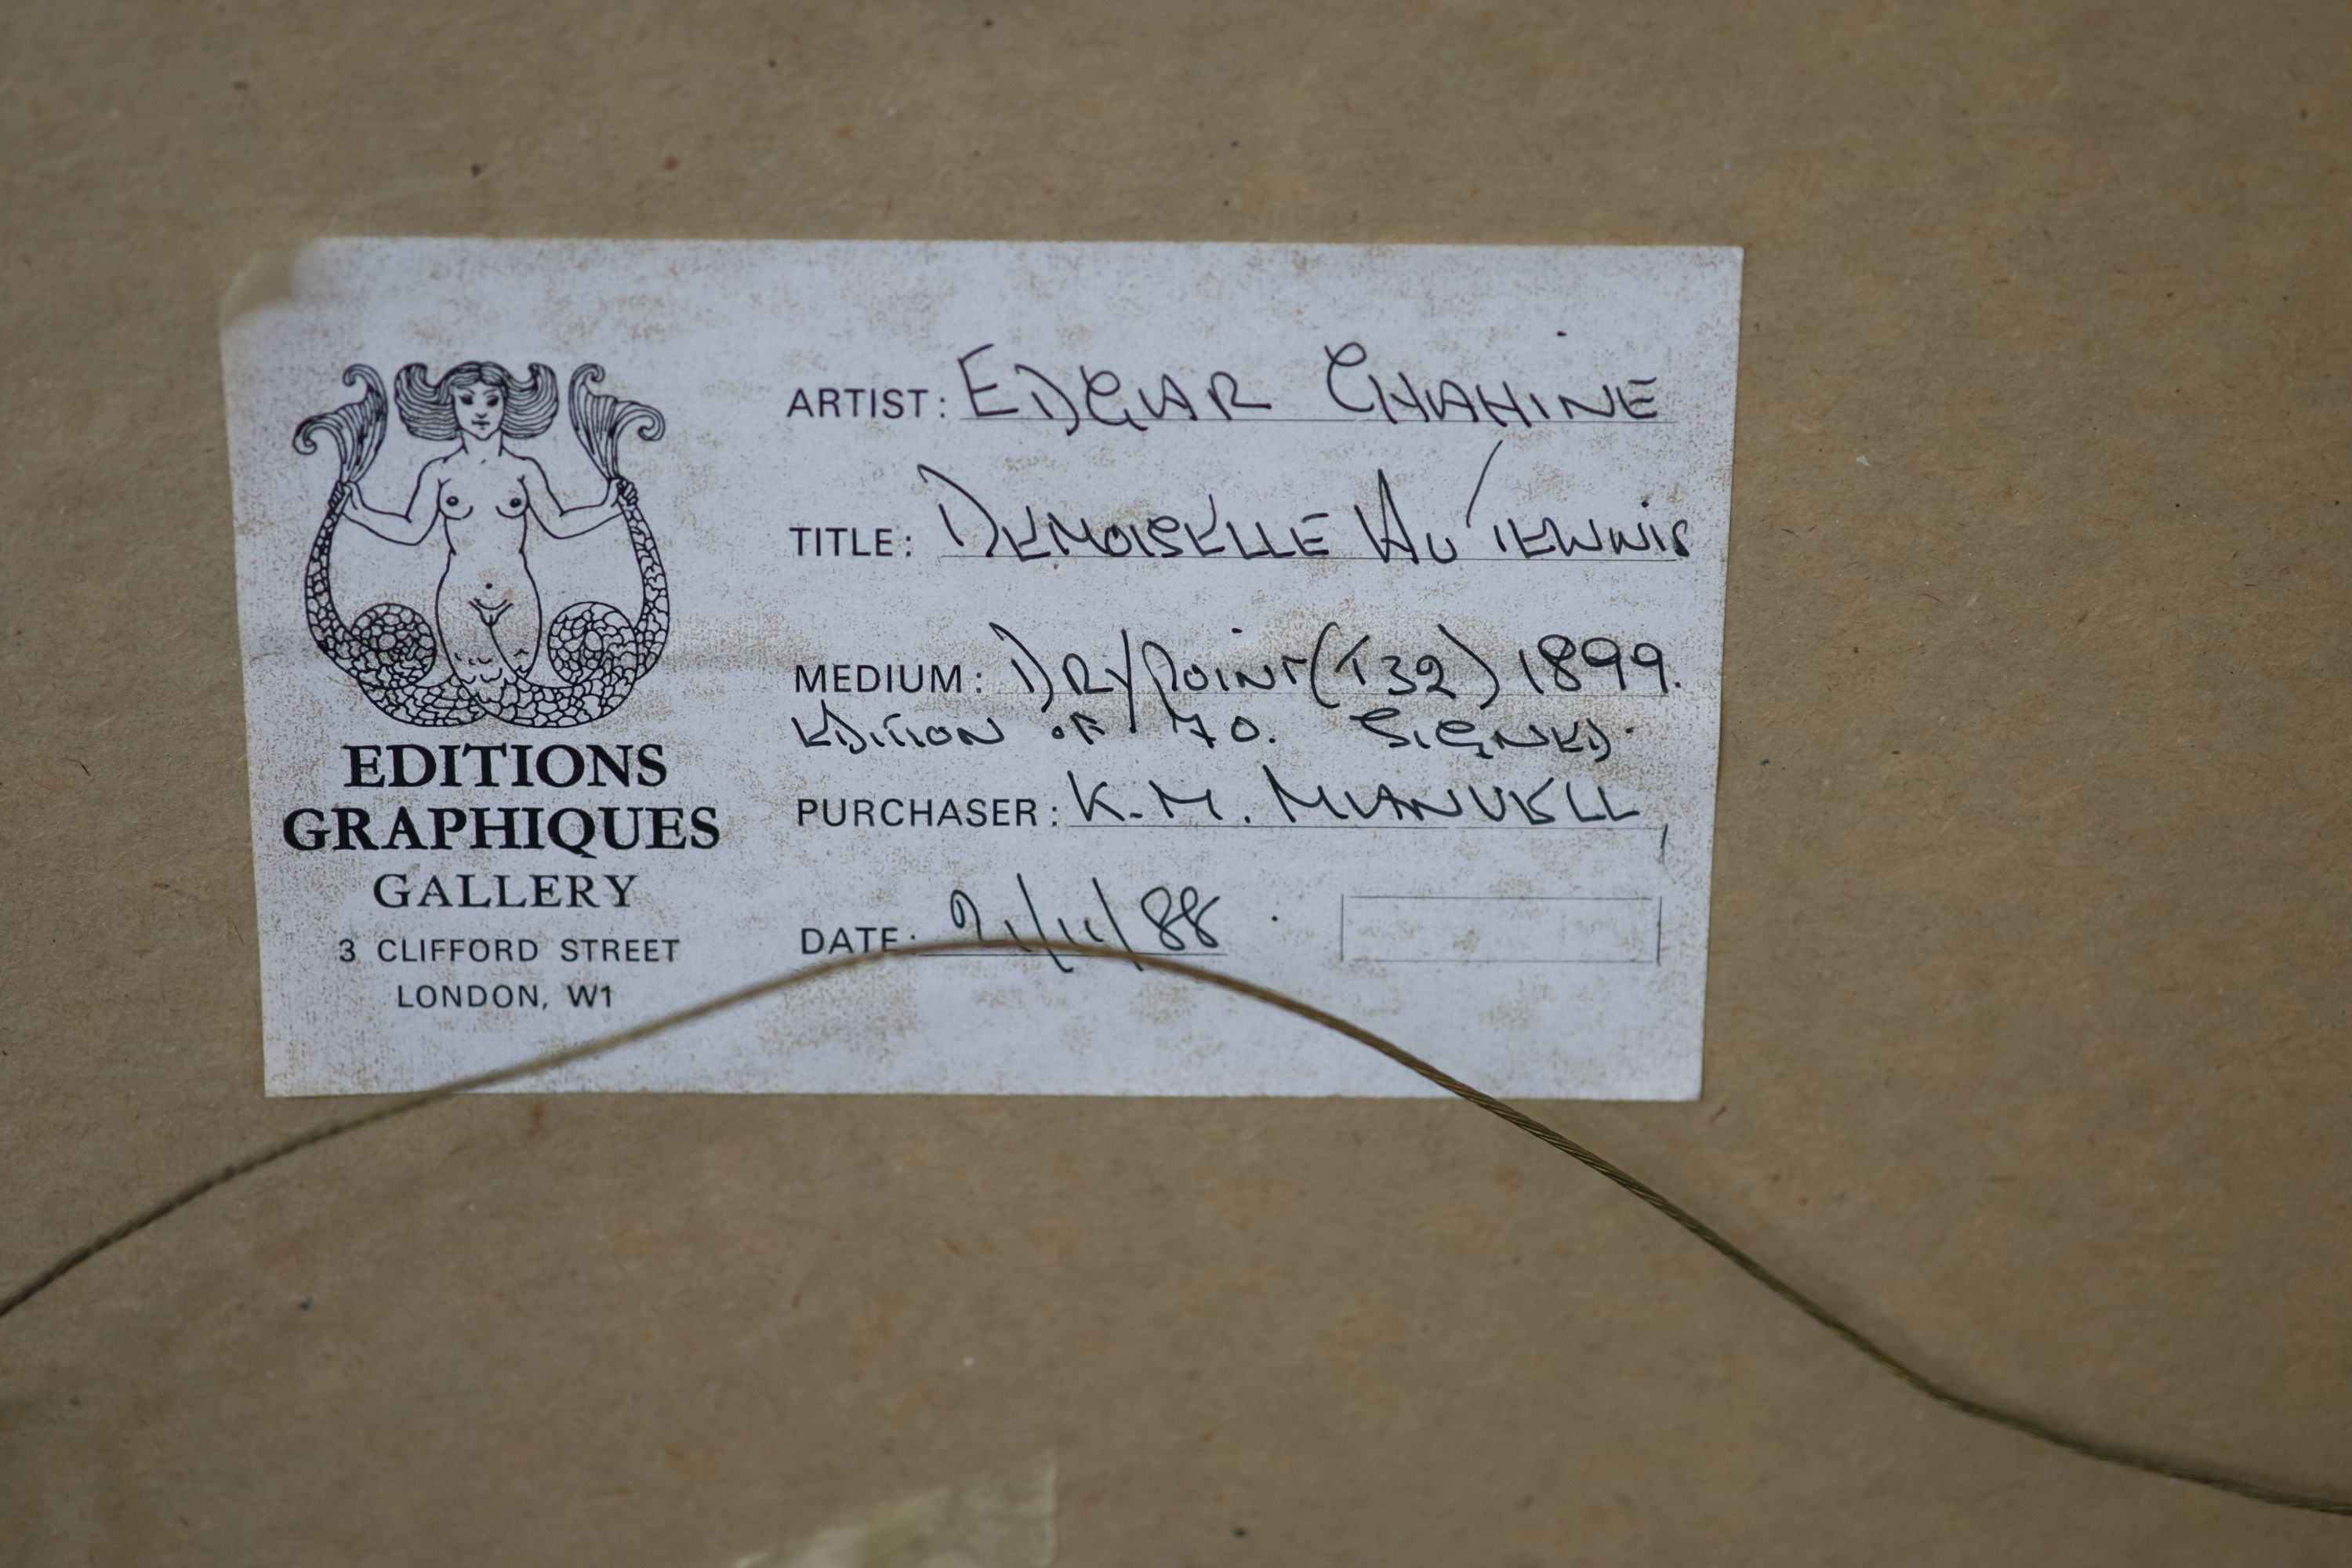 ARTIST: EDGAR CHAHINE
TITLE: DEMOISELLE AU TENNIS
MEDIUM: DRYPOINT (T32) 1899.
EDITION OF 70. SIGNED.
PURCHASER: K.M.
DATE: 21/11/88
EDITIONS
GRAPHIQUES
GALLERY
3 CLIFFORD STREET
LONDON, W1